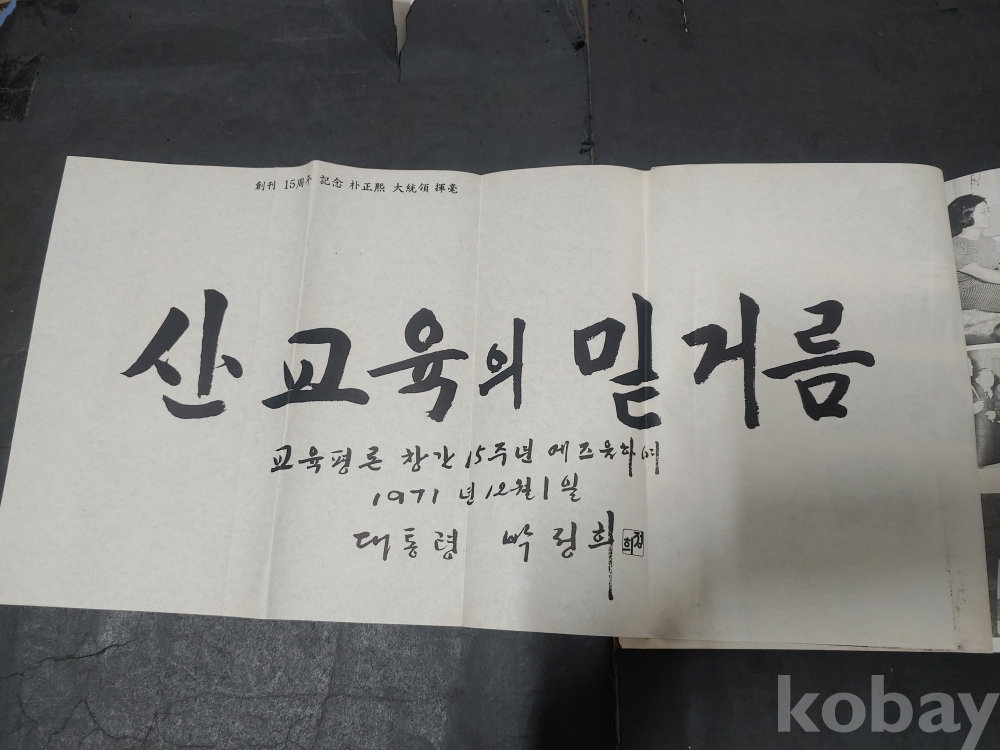 創刊 15周年 記念 朴正熙 大統領 揮毫
산 교육의 밑거름
교육평론 창간 15주년에 즈음하여
1971년 12월 1일
대통령 박정희
정희
kobay